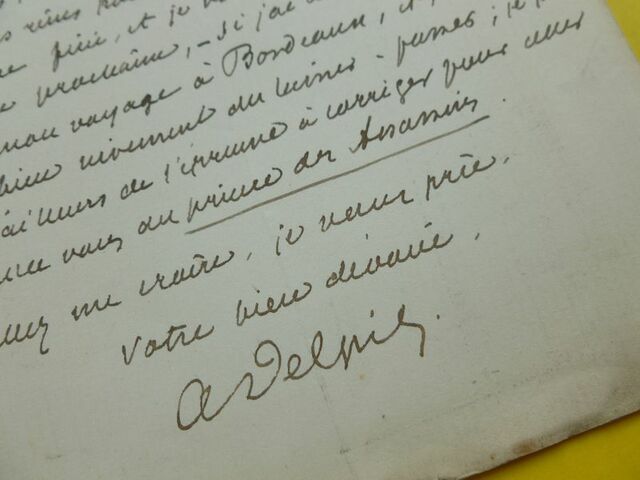 pire, et je
prochaine, - si j'ai
mon voyage à Bordeaux, et,
bien vivement du laisser-passer ; je
d'ailleurs de l'épreuve à corriger pour
vous du prince des Assassins.
me croire, je vous prie,
votre bien dévoué,
ADelpit.